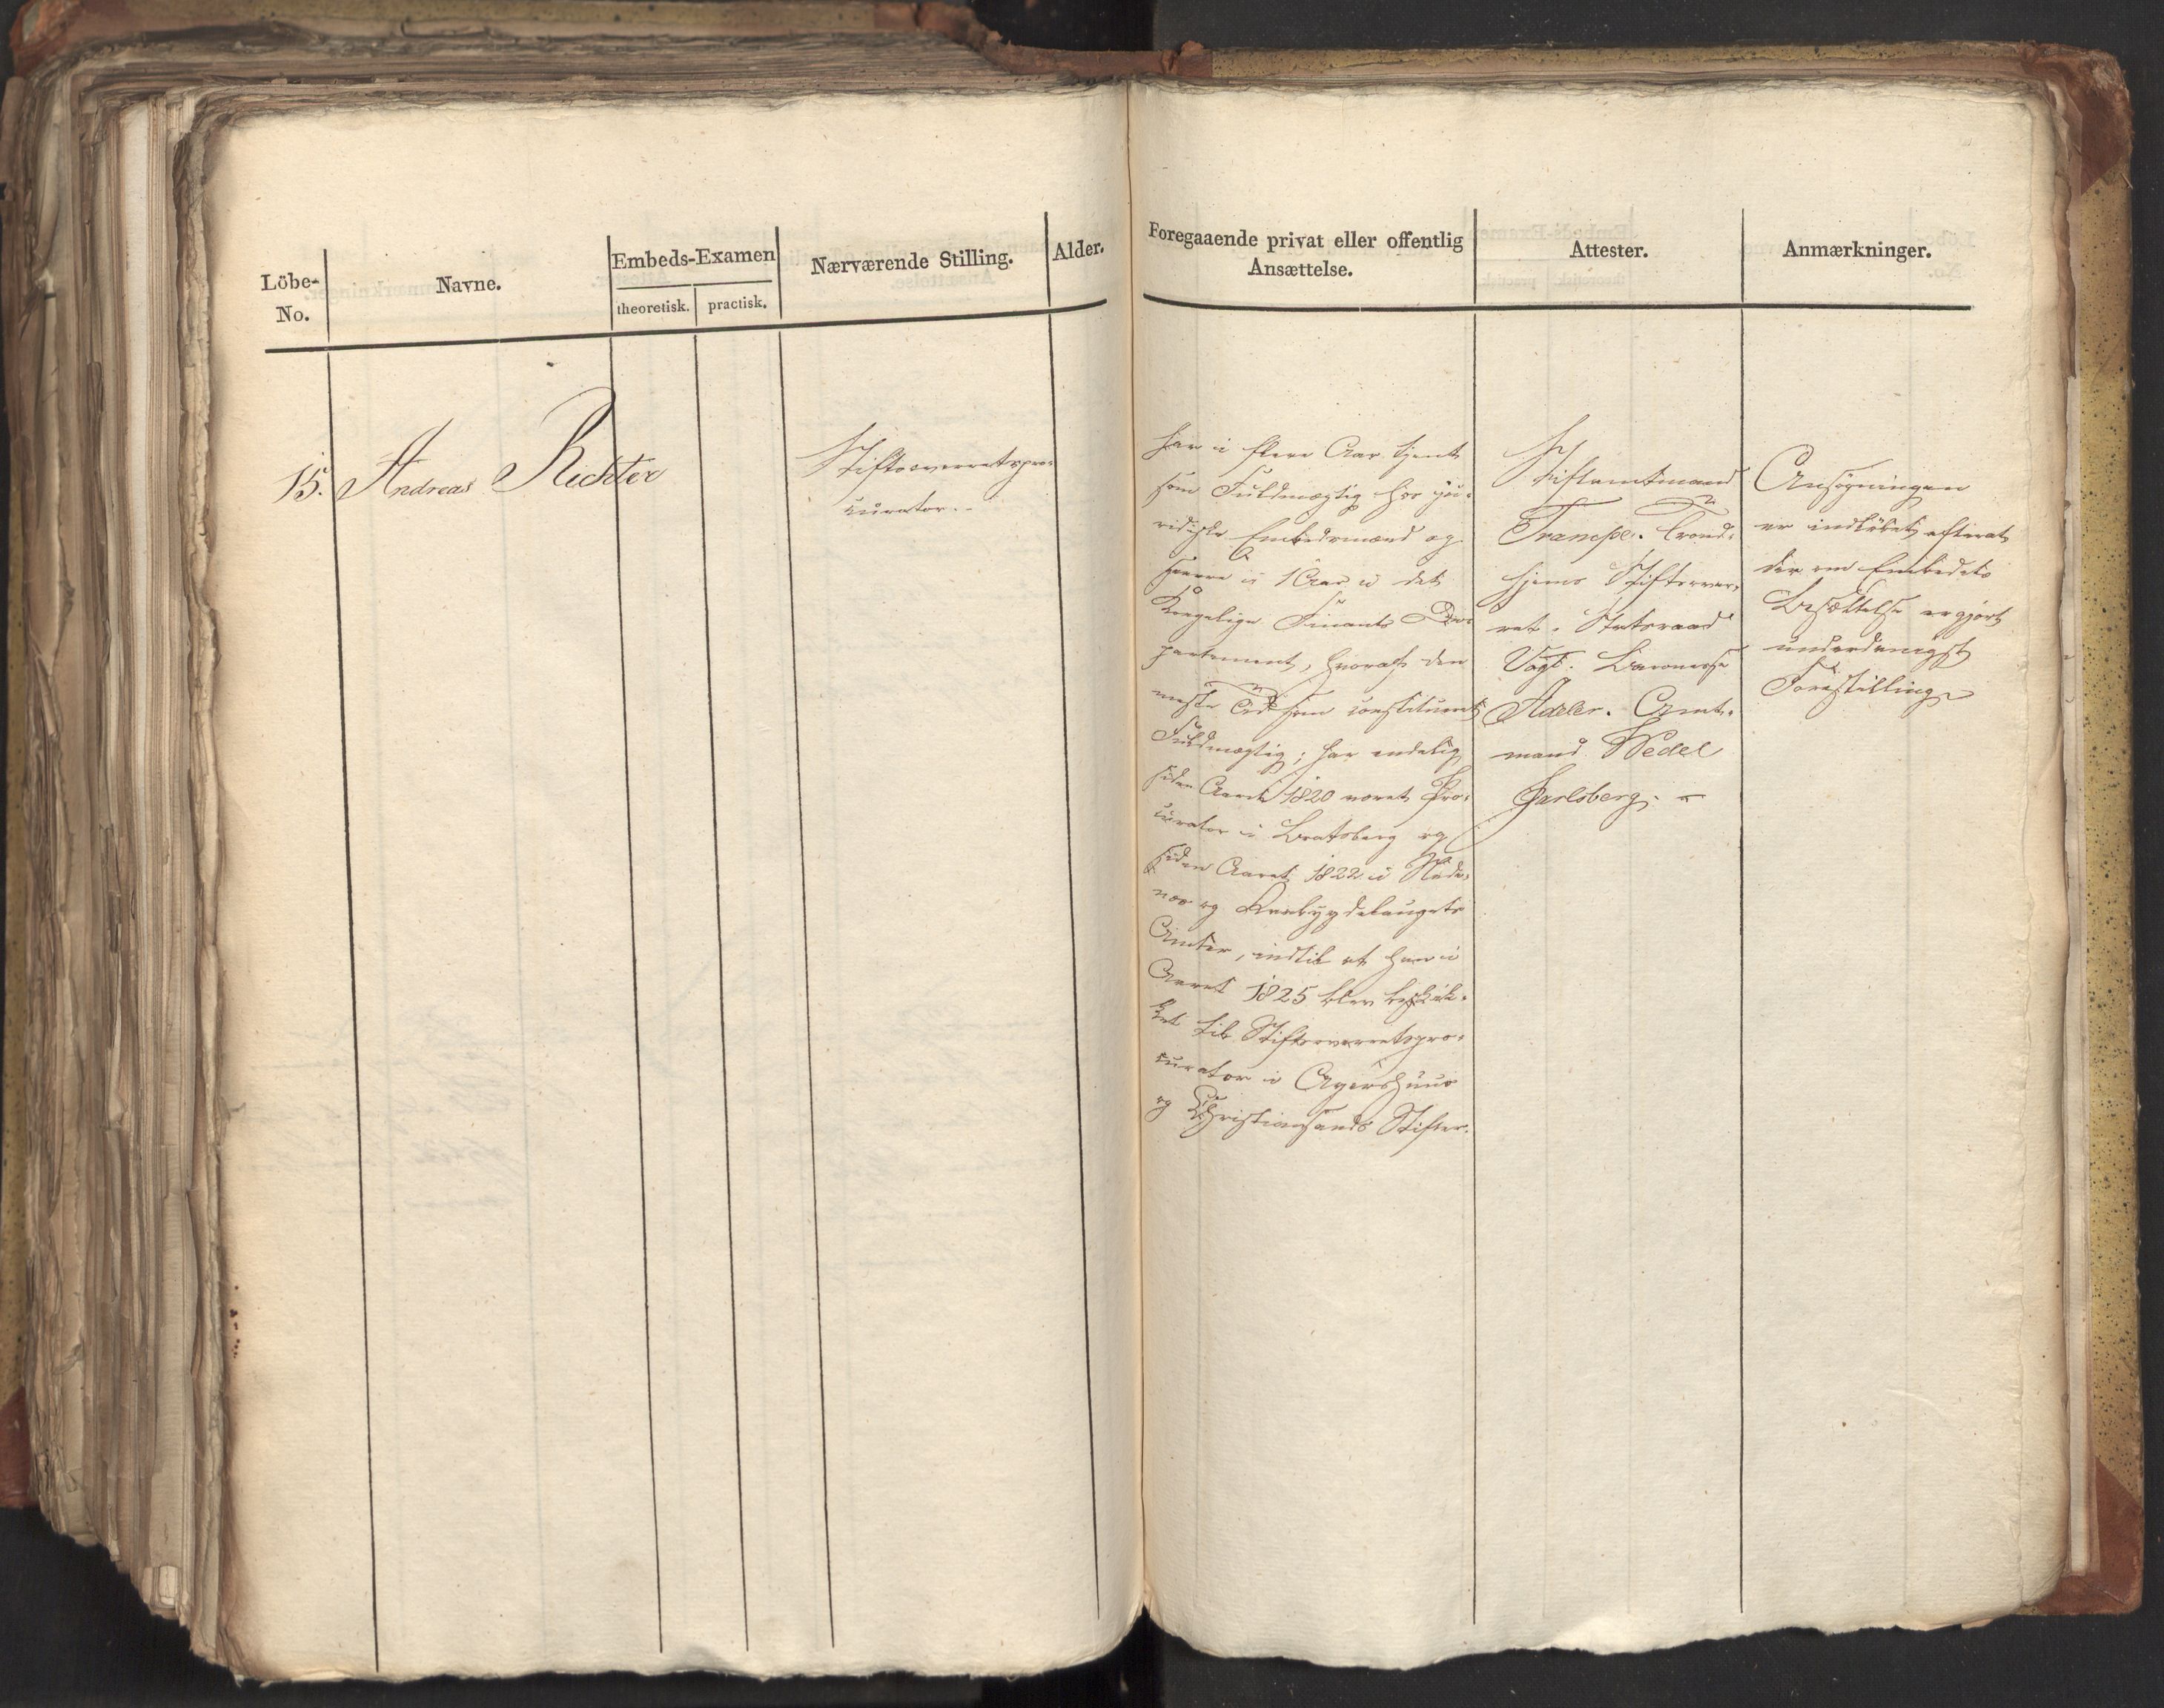 Löbe-
No.
Navne.
Embeds-Examen
theoretisk.
practisk.
Nærværende Stilling.
Alder.
Foregaaende privat eller offentlig
Ansættelse.
Attester.
Anmærkninger.
15.
Andreas Richter
Stiftsoverretspro-
curator.
har i flere Aar tjent
som Fuldmægtig hos ju-
ridiske Embedsmænd og
i 1 Aar i det
Kongelige Finants De-
partement, hvoraf den
meste Tid som constitueret
Fuldmægtig; har endelig
siden Aaret 1820 været Pro-
curator i Bratsberg og
siden Aaret 1822 i Nede-
næs og Raabygdelaugets
Amter, indtil at han i
Aaret 1825 blev beskik-
ket til Stiftsoverretspro-
curator i Agershuus
og Christiansands Stifter.
Stiftamtmand
Trampe. Trond-
hjems Stiftsover-
ret. Statsraad
Vogt. Baronesse
Adeler. Amt-
mand Wedel
Jarlsberg. -
Ansøgningen
er indløbet efterat
der om Embedets
Besættelse er gjort
underdanigst
Forestilling